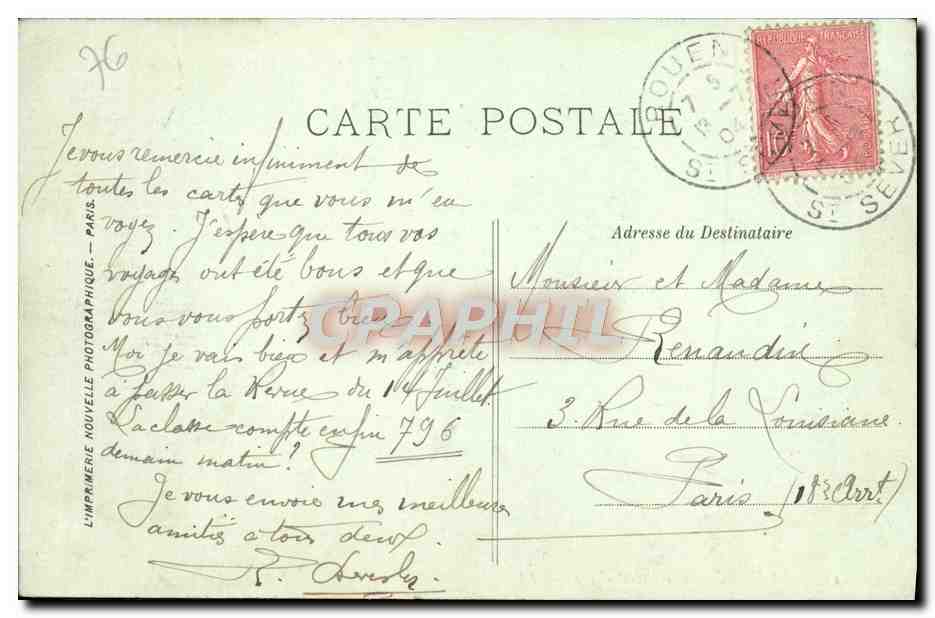 76
CARTE POSTALE
REPUBLIQUE FRANÇAISE
ROUEN
ST SEVER
ST SEVER
Je vous remercie infiniment de
toutes les cartes que vous m'en
voyez. J'espère que tous vos
voyages ont été bons et que
vous vous portez bien
Moi je vais bien et m'apprète
à passer la Revue du 14 Juillet.
La classe compte enfin 796
demain matin?
Je vous envoie mes meilleures
amitiés à tous deux.
R.
L'IMPRIMERIE NOUVELLE PHOTOGRAPHIQUE. — PARIS.
Adresse du Destinataire
Monsieur et Madame
Renaudin
3. Rue de la Louisiane.
Paris (18e Arrt)
CPAPHIL